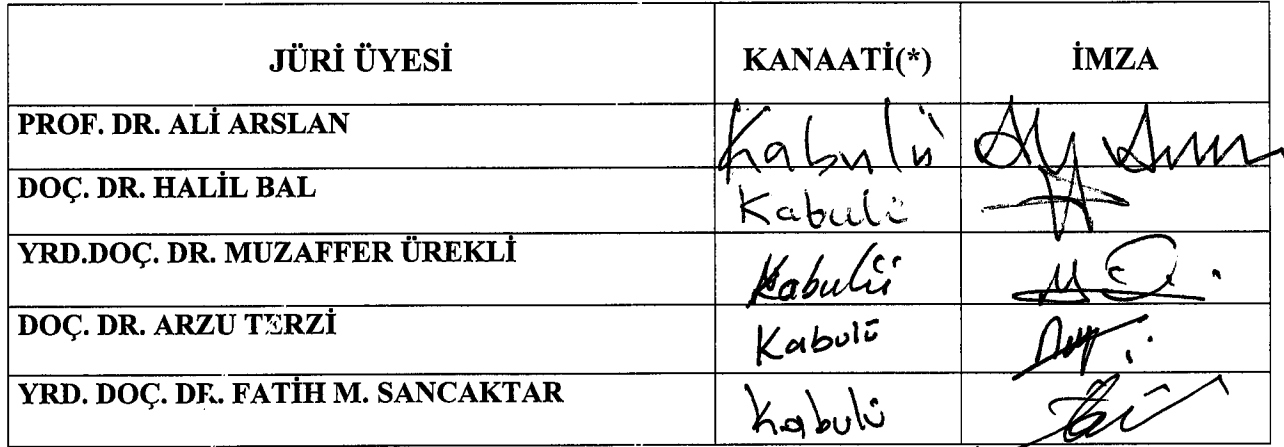 JÜRİ ÜYESİ KANAATİ(*) İMZA
PROF. DR. ALİ ARSLAN Kabulü
DOÇ. DR. HALİL BAL Kabulü
YRD.DOÇ. DR. MUZAFFER ÜREKLİ Kabulü
DOÇ. DR. ARZU TERZİ Kabulü
YRD. DOÇ. DR. FATİH M. SANCAKTAR Kabulü